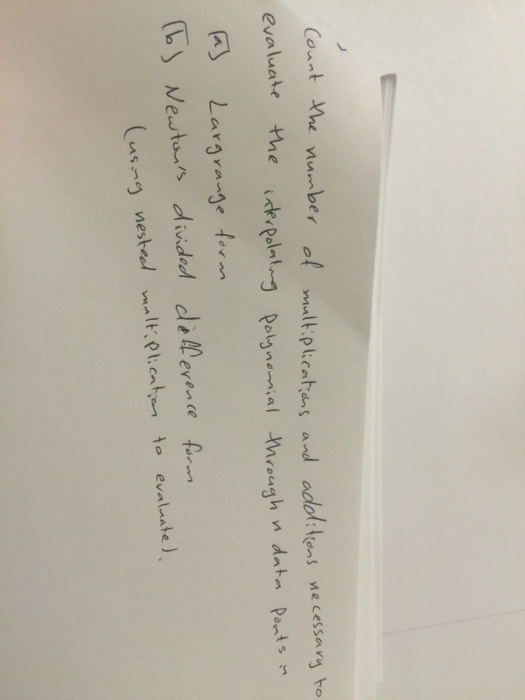 Count the number of multiplications and additions necessary to
evaluate the interpolating polynomial through n data points in
[a] Largrange form
[b] Newton's divided difference form
(using nested multiplication to evaluate).